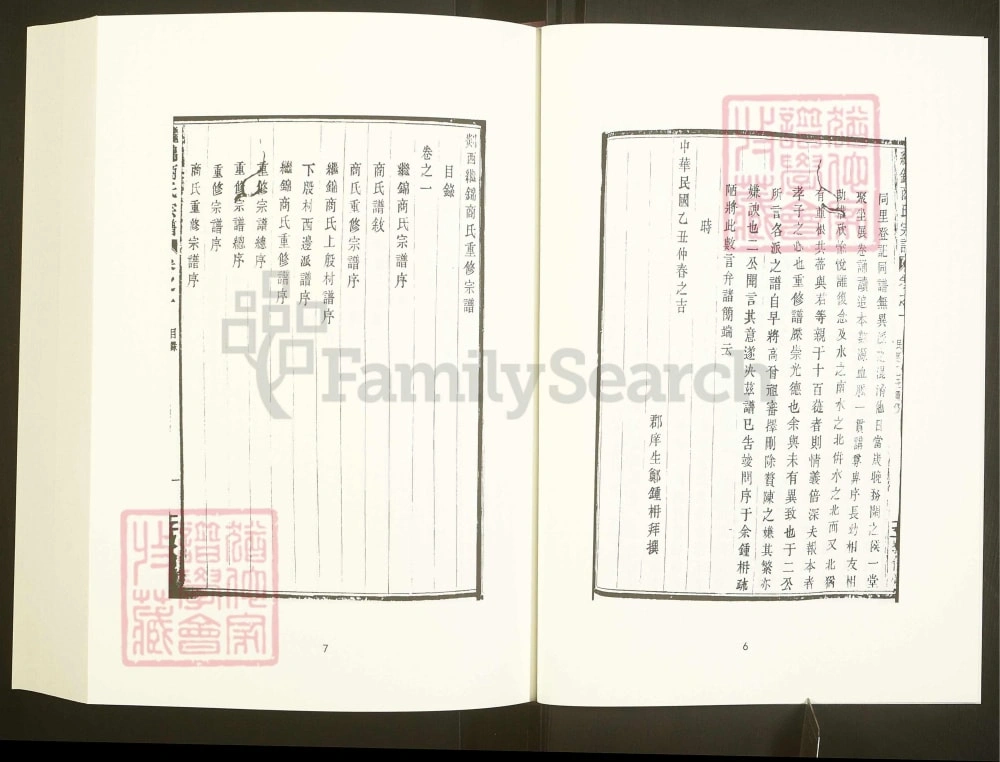 同里登記同譜無異派之混淆他日當歲晚務閒之候一堂
聚坐展卷誦讀追本尋源血脈一貫講尊卑序長幼相友相
助藹然愉悅離復念及水之南水之北併水之北而又北獨
有重根共蒂與右等親于十百蓰者則情義倍深夫報本者
孝子之心也重修譜牒崇光德也余與未有異致也于二公
所言各派之譜自早將高曾祖審擇刪除贅陳之嫌其繁亦
嫌諛也二公聞言其意遂決茲譜已告竣問序于余鍾枏疏
陋將此數言弁諸簡端云
時
中華民國乙丑仲春之吉
郡庠生鄭鍾枏拜撰
6
剡西繼錦商氏重修宗譜
目錄
卷之一
繼錦商氏宗譜序
商氏譜敘
商氏重修宗譜序
繼錦商氏上殷村譜序
下殷村西邊派譜序
繼錦商氏重修譜序
重修宗譜總序
重修宗譜總序
重修宗譜序
商氏重修宗譜序
商氏宗譜
卷之一
目錄
一
7
FamilySearch